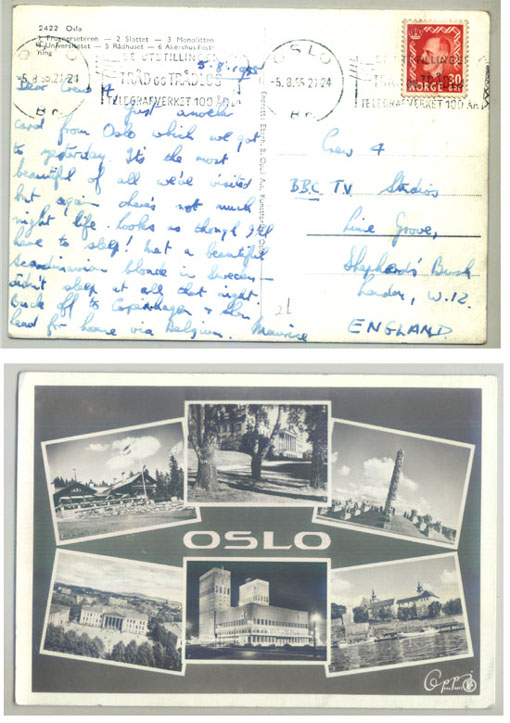 2422 Oslo
1 Frognerseteren — 2 Slottet — 3 Monolitten
4 Universitetet — 5 Rådhuset — 6 Akershus Fest-
ning
OSLO
-5.8.55.21-24
Br.
UTSTILLINGEN
TRÅD OG TRÅDLØS
TELEGRAFVERKET 100 ÅR
OSLO
-5.8.55.21-24
Br.
UTSTILLINGEN
TRÅD OG TRÅDLØS
TELEGRAFVERKET 100 ÅR
30
NORGE
5.8.1955
Dear Crew 4
Just another
card from Oslo which we got
to yesterday. It's the most
beautiful of all we've visited
but again there's not much
night life. Looks as though I'll
have to sleep! Met a beautiful
Scandinavian blonde in Sweden
didn't sleep at all that night.
Back off to Copenhagen & then
head for home via Belgium. Maurice
Crew 4
BBC TV Studios
Lime Grove,
Shepherd's Bush
London, W.12.
ENGLAND
OSLO